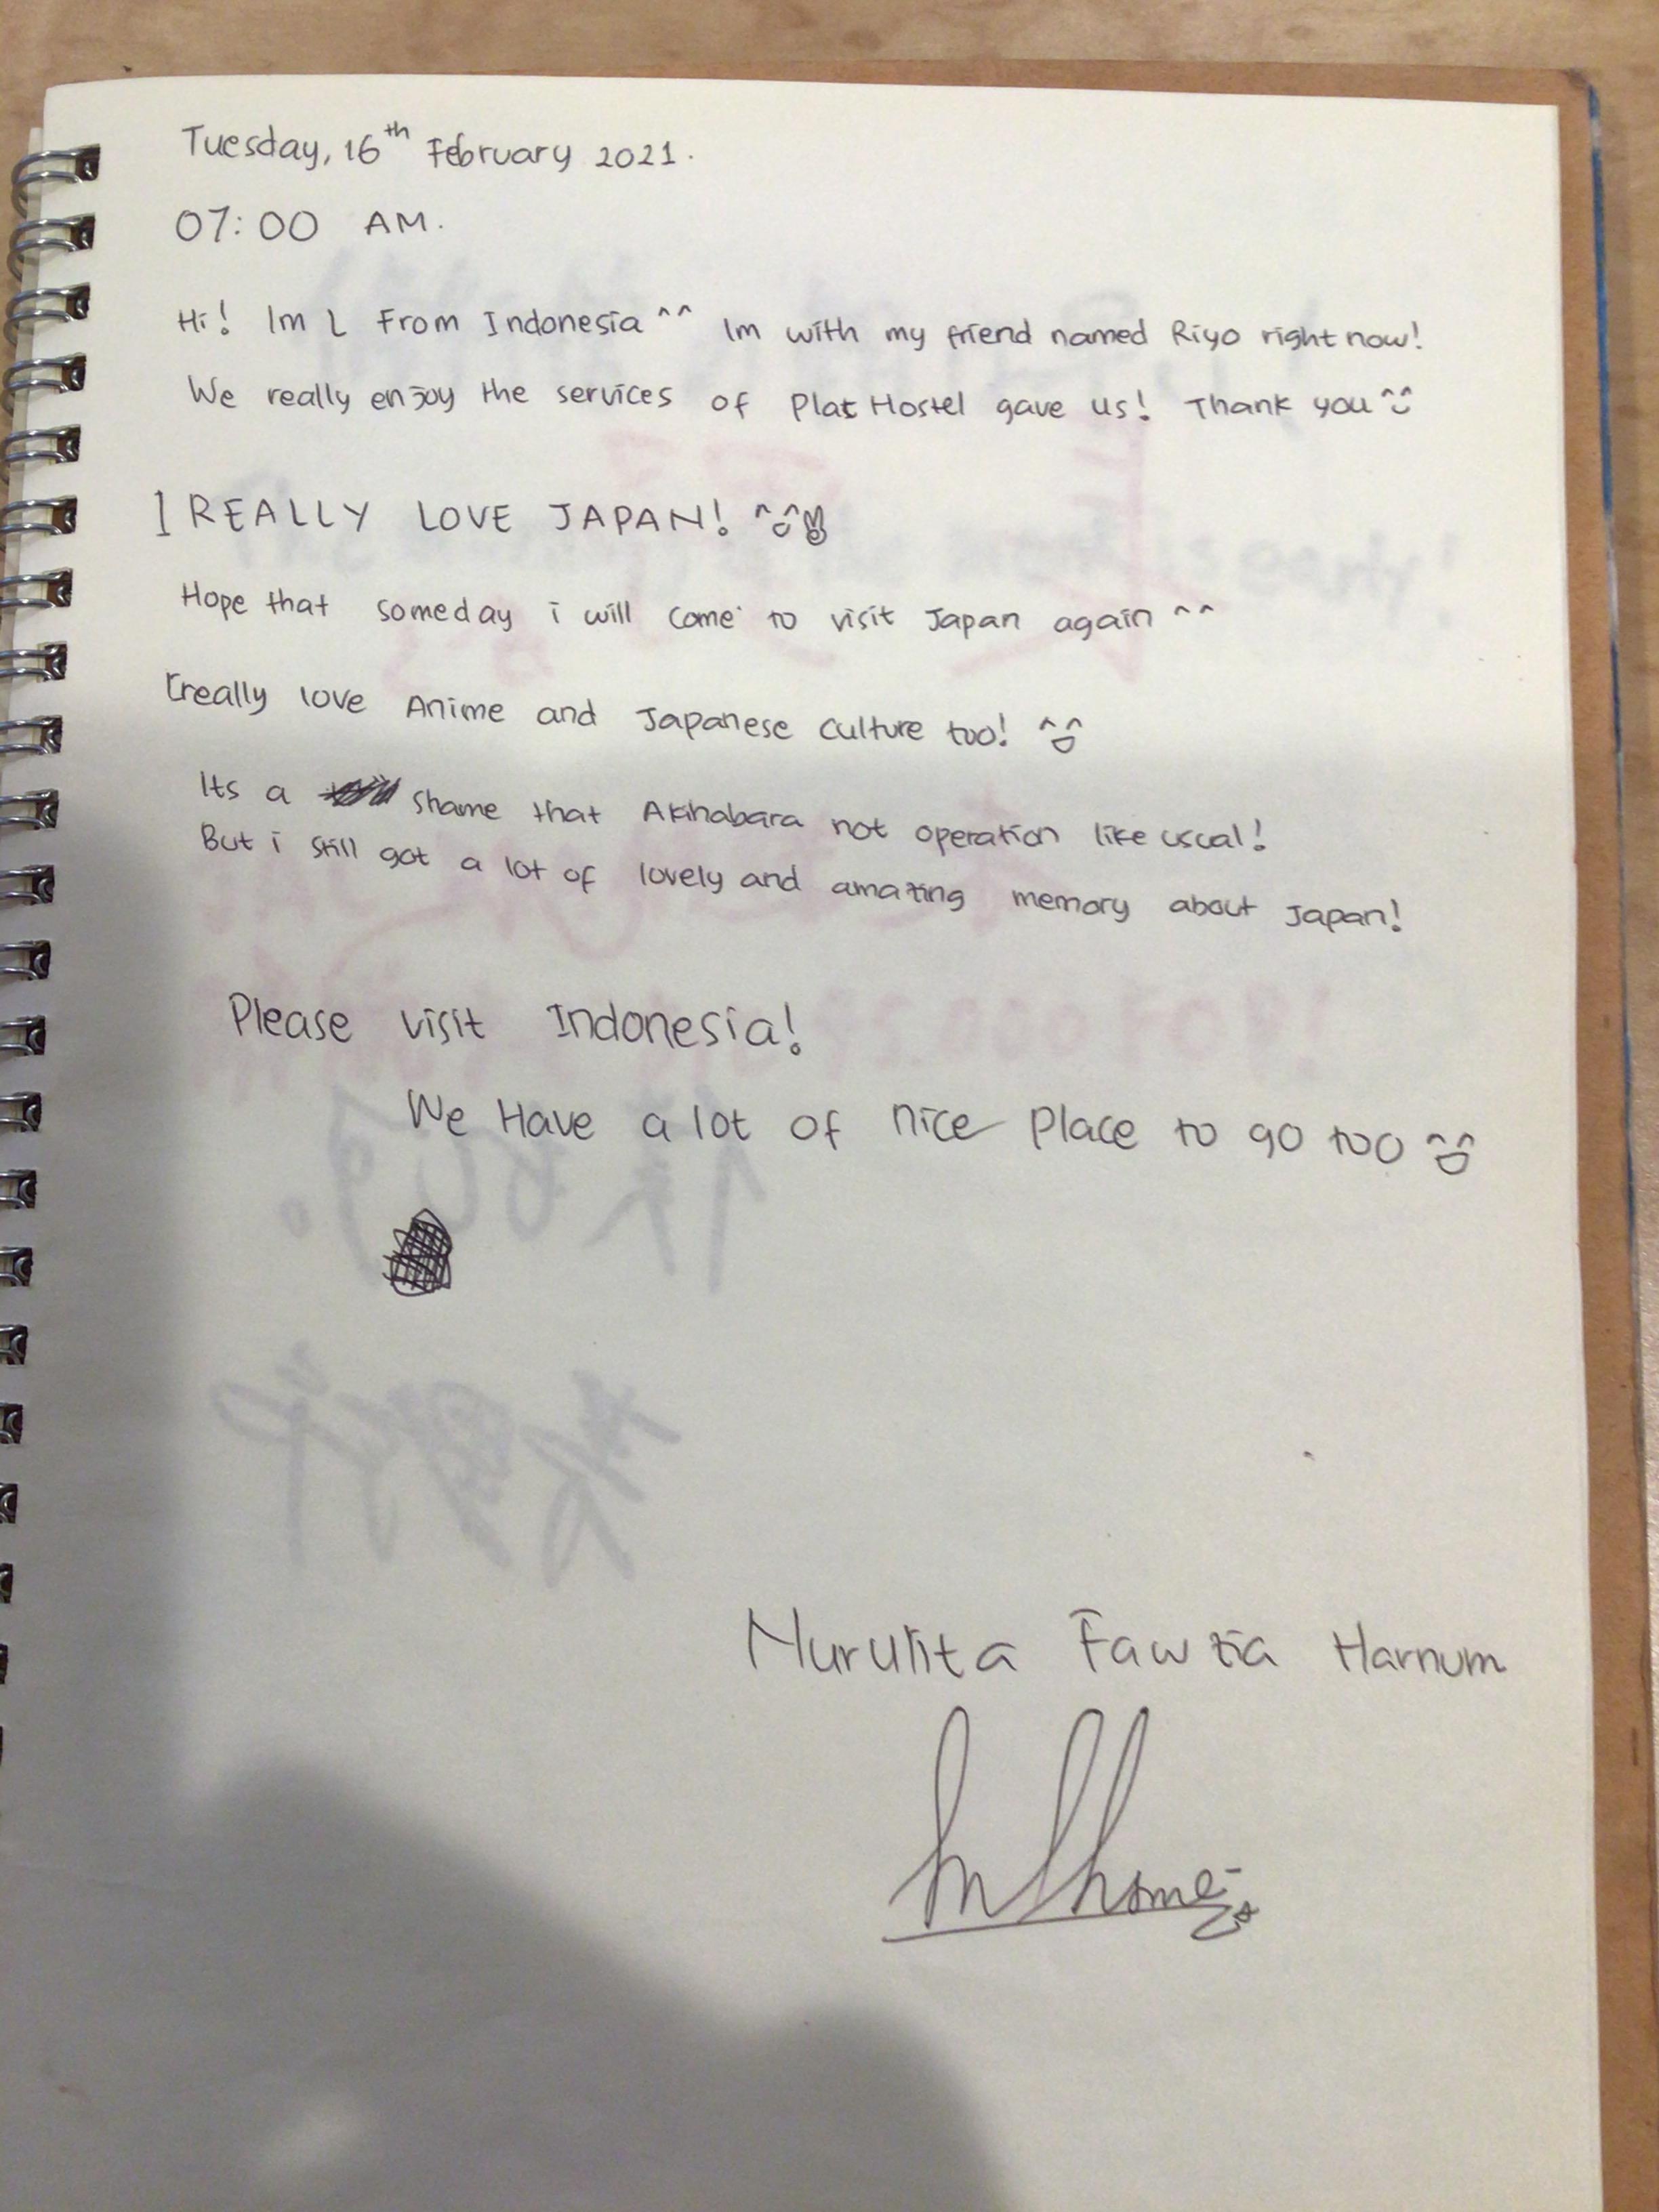 Tuesday, 16th February 2021.
07:00 AM.
Hi! Im L From Indonesia ^^ Im with my friend named Riyo right now!
We really enjoy the services of Plat Hostel gave us! Thank you
I REALLY LOVE JAPAN!
Hope that someday i will come to visit Japan again ^^
I really love Anime and Japanese culture too!
Its a shame that Akihabara not operation like usual!
But i still got a lot of lovely and amazing memory about Japan!
Please visit Indonesia!
We Have a lot of nice place to go too
Nurulita Fawzia Harnum